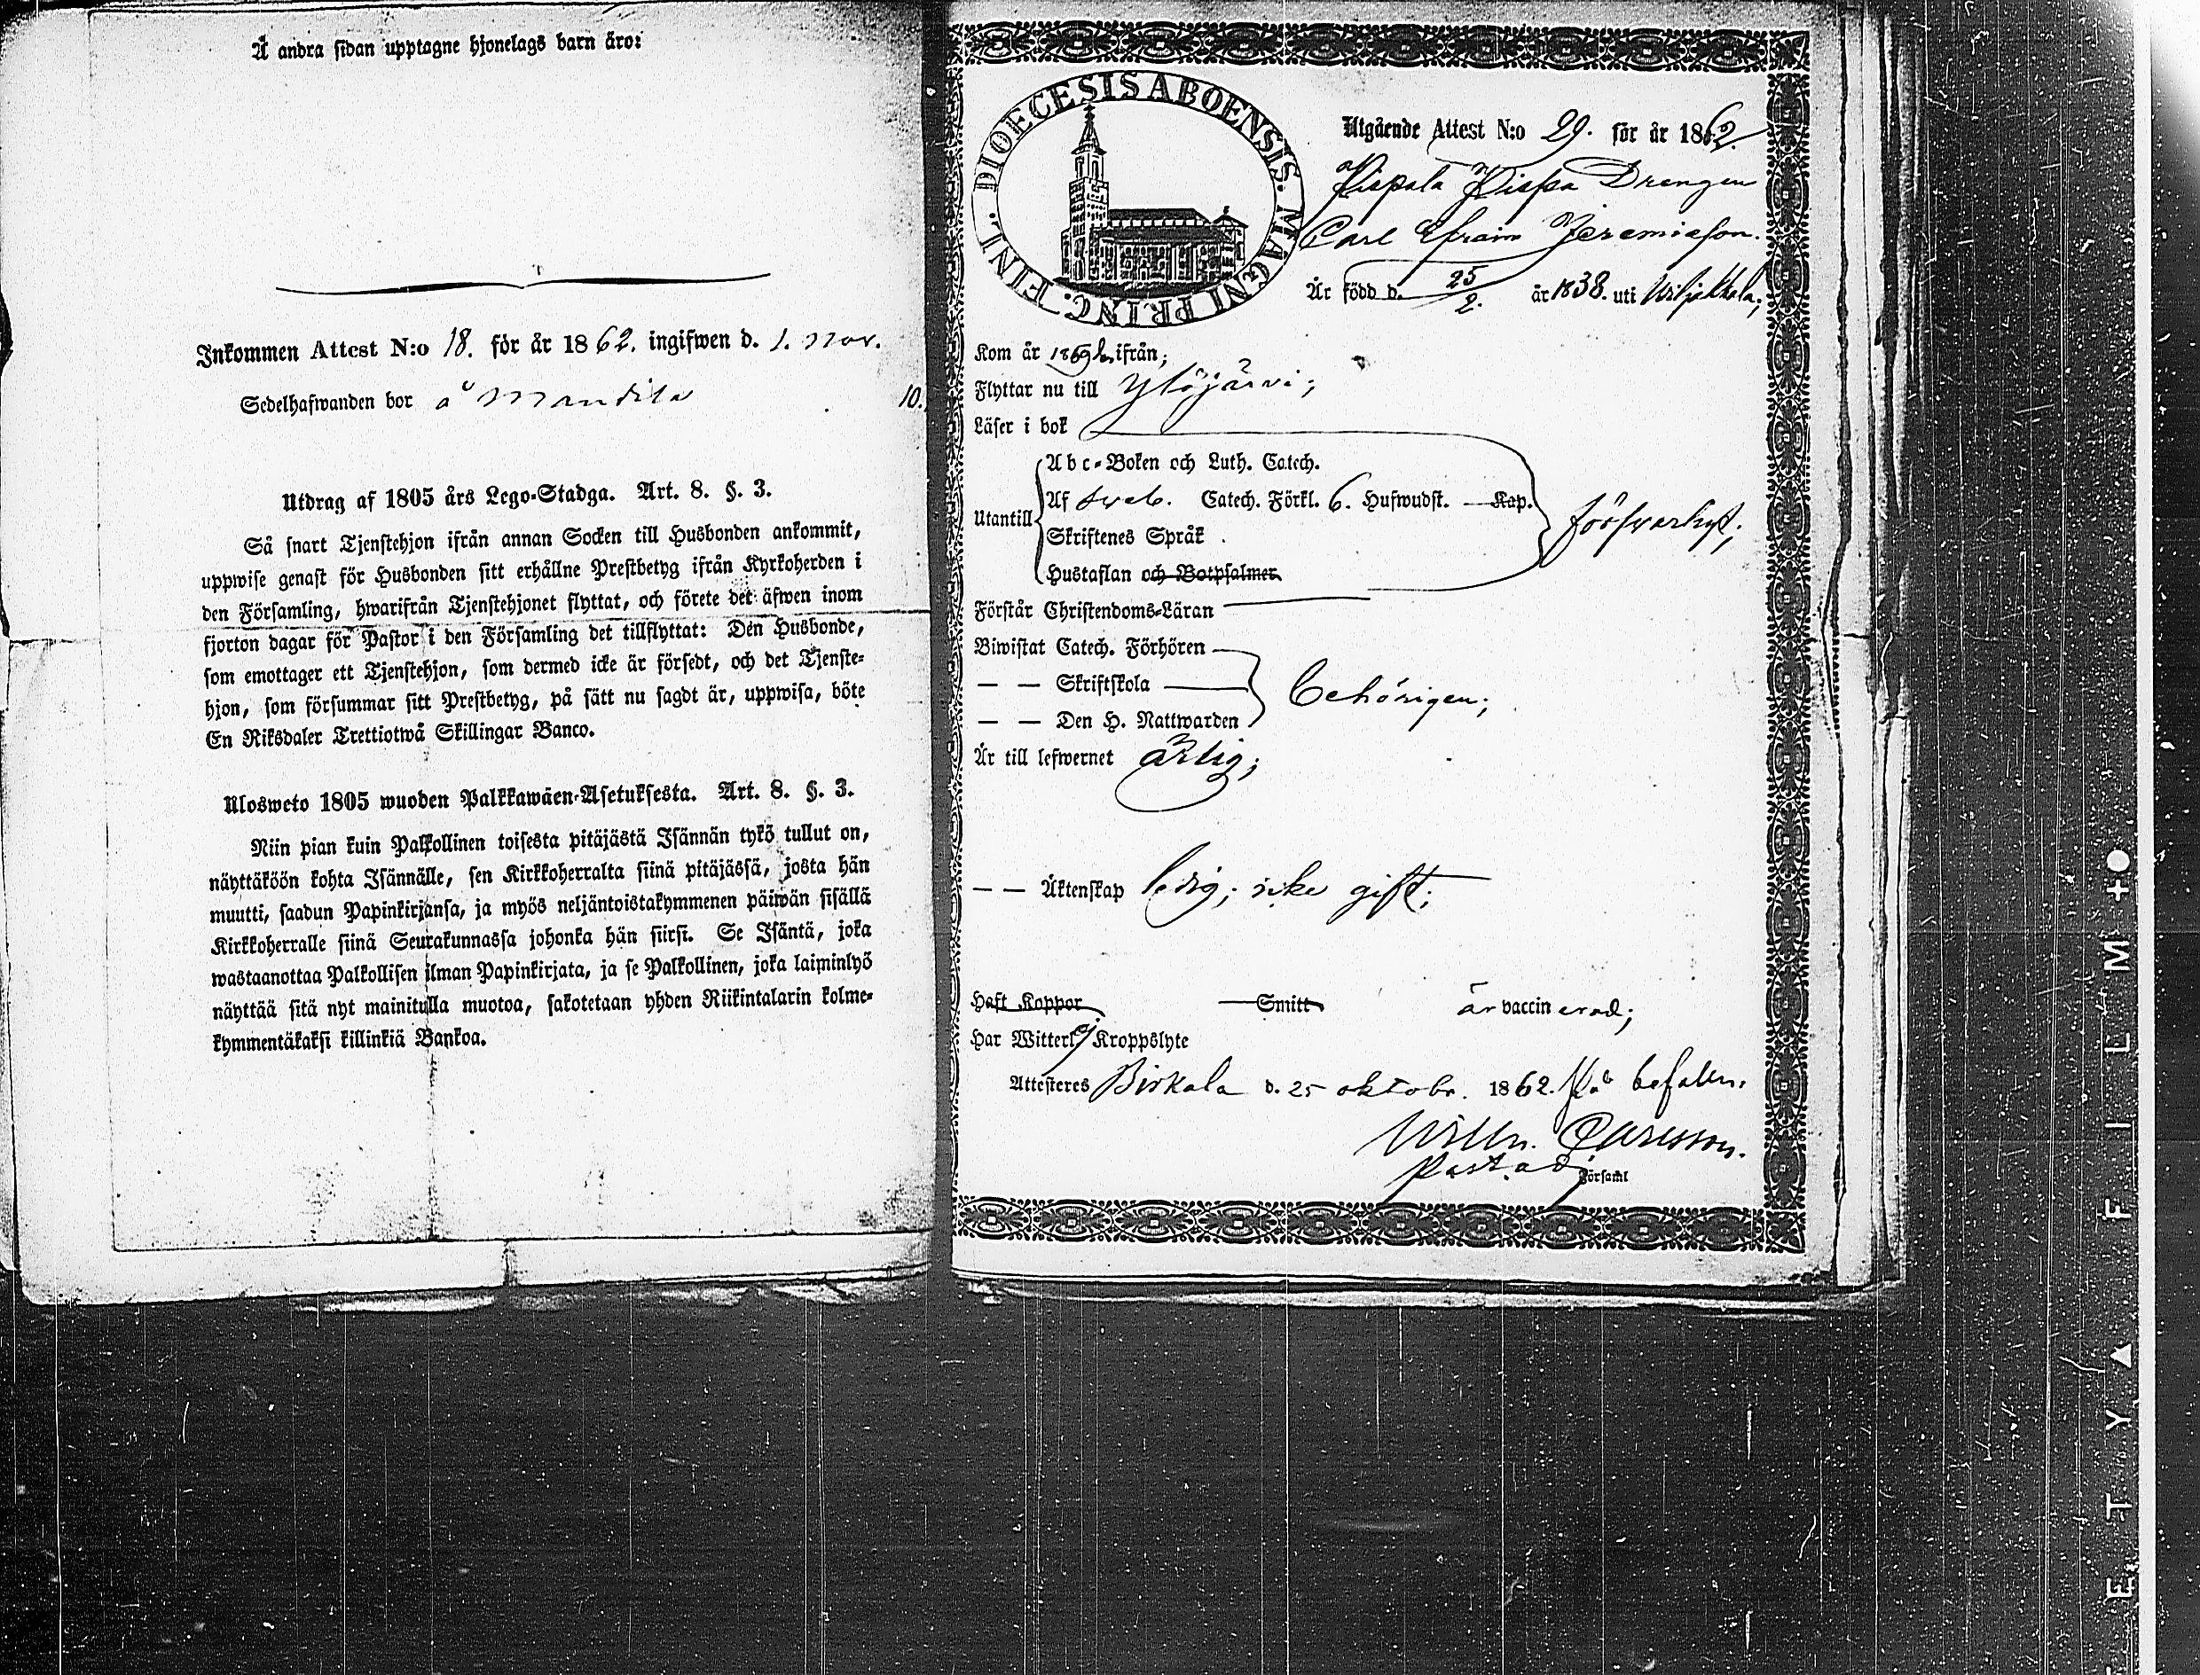 Å andra sidan upptagne hjonelags barn äro:
Inkommen Attest N:o 18. för år 1862. ingifwen d. 1. Nov.
Sedelhafwanden bor å Mandila
10.
Utdrag af 1805 års Lego-Stadga. Art. 8. §. 3.
Så snart Tjenstehjon ifrån annan Socken till Husbonden ankommit,
uppwise genast för Husbonden sitt erhållne Prestbetyg ifrån Kyrkoherden i
den Församling, hwarifrån Tjenstehjonet flyttat, och förete det äfwen inom
fjorton dagar för Pastor i den Församling det tillflyttat: Den Husbonde,
som emottager ett Tjenstehjon, som dermed icke är försedt, och det Tjenste-
hjon, som försummar sitt Prestbetyg, på sätt nu sagdt är, uppwisa, böte
En Riksdaler Trettiotwå Skillingar Banco.
Ulosweto 1805 wuoden Palkkawäen-Asetuksesta. Art. 8. §. 3.
Niin pian kuin Palkollinen toisesta pitäjästä Isännän tykö tullut on,
näyttäköön kohta Isännälle, sen Kirkkoherralta siinä pitäjässä, josta hän
muutti, saadun Papinkirjansa, ja myös neljäntoistakymmenen päiwän sisällä
Kirkkoherralle siinä Seurakunnassa johonka hän siirsi. Se Isäntä, joka
wastaanottaa Palkollisen ilman Papinkirjata, ja se Palkollinen, joka laiminlyö
näyttää sitä nyt mainitulla muotoa, sakotetaan yhden Riikintalarin kolme-
kymmentäkaksi killinkiä Bankoa.
DIOECESIS ABOENSIS. MAGNI PRINC. FINL.
Utgående Attest N:o 29. för år 1862
Pispala Pispa Drengen
Carl Efraim Jeremiason.
Är född d. 25/2. år 1838. uti Wiljakkala;
Kom år ifrån;
Flyttar nu till Ylöjärvi;
Läser i bok
Abc-Boken och Luth. Catech.
Utantill
Af Sveb. Catech. Förkl. 6. Hufwudst. Kap.
Skriftenes Språk
Hustaflan och Botpsalmer
försvarligt;
Förstår Christendoms-Läran
Biwistat Catech. Förhören
— — Skriftskola
— — Den H. Nattwarden
behörigen;
Är till lefwernet ärlig;
— — Äktenskap ledig; icke gift;
Haft Koppor Smitt är vaccinerad;
Har Witterl. ej Kroppslyte
Attesteres Birkala d. 25 oktobr. 1862. På befalln.
Willh. Carlsson.
Past. adj.
Församl
F I L M
E T Y